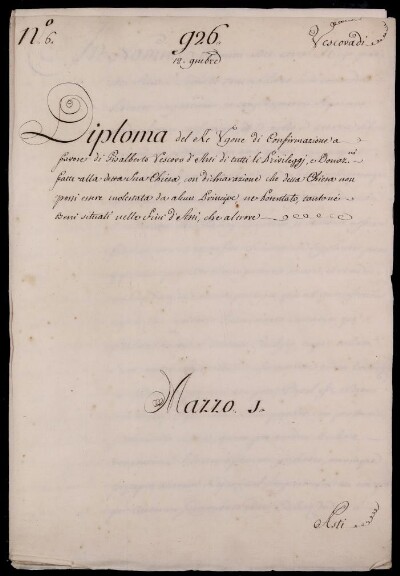 N.º 6.
926.
12. 9mbre
Vescovadi
Diploma del Re Ugone di Confirmazione a
favore di Rosalberto Vescovo d'Asti di tutti li Privileggj, e Donaz.ni
fatte alla detta sua Chiesa, con dichiarazione che detta Chiesa non
possi essere molestata da alcun Principe ne Potentato, tanto ne
beni situati nelle Fini d'Asti, che altrove
Mazzo 1.
Asti